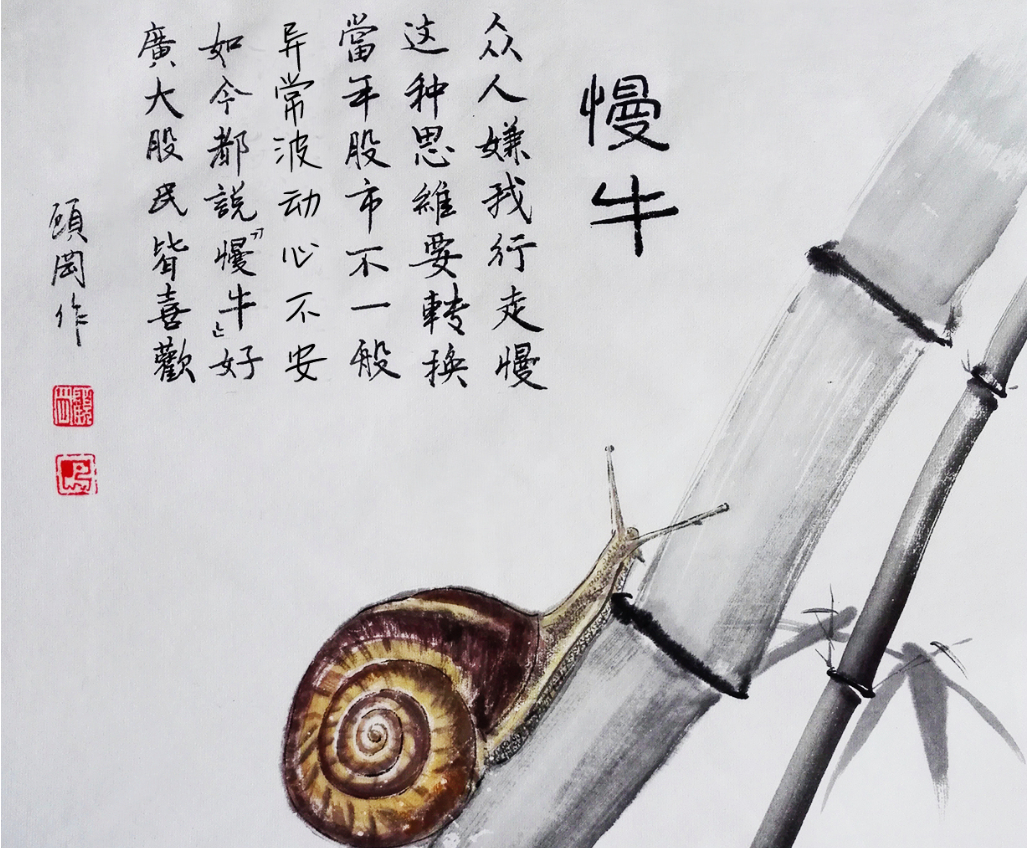 慢牛
众人嫌我行走慢
这种思維要轉换
當年股市不一般
异常波动心不安
如今都説「慢牛」好
廣大股民皆喜歡
顾岡作